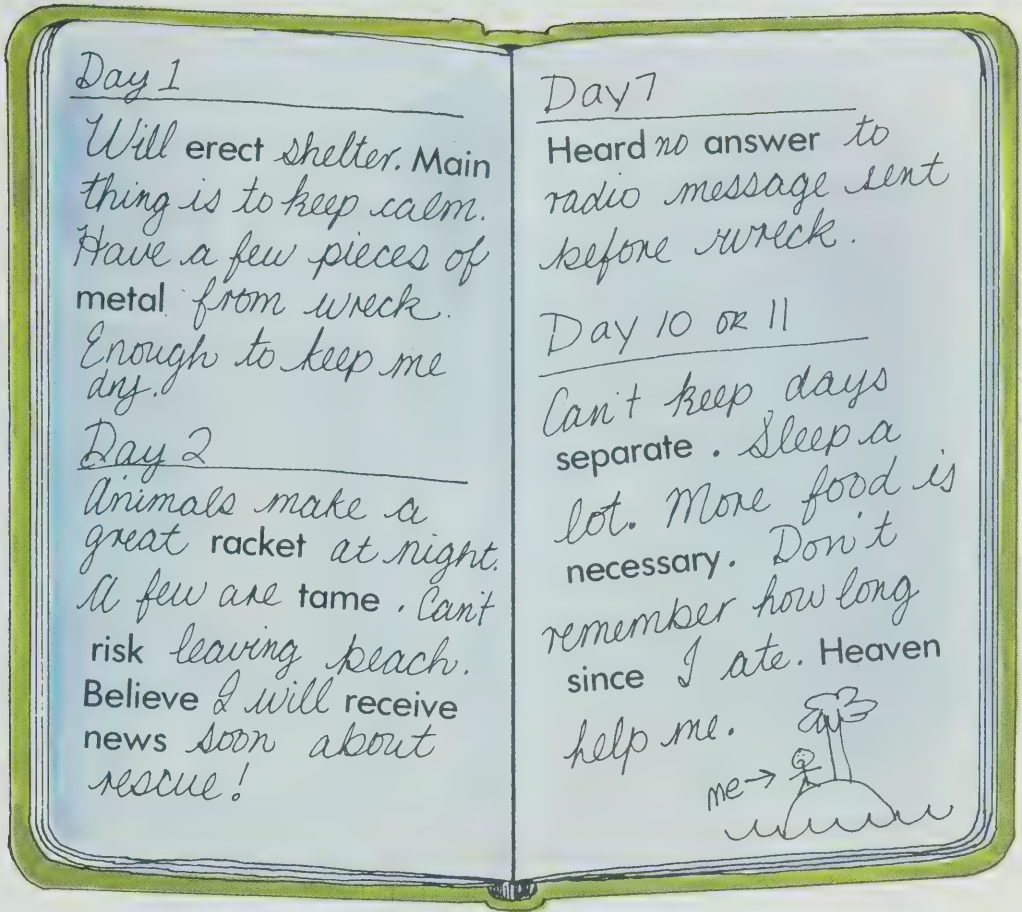 Day 1
Will erect shelter. Main
thing is to keep calm.
Have a few pieces of
metal from wreck.
Enough to keep me
dry.
Day 2
Animals make a
great racket at night.
A few are tame. Can't
risk leaving beach.
Believe I will receive
news soon about
rescue!
Day 7
Heard no answer to
radio message sent
before wreck.
Day 10 OR 11
Can't keep days
separate. Sleep a
lot. More food is
necessary. Don't
remember how long
since I ate. Heaven
help me.
me→